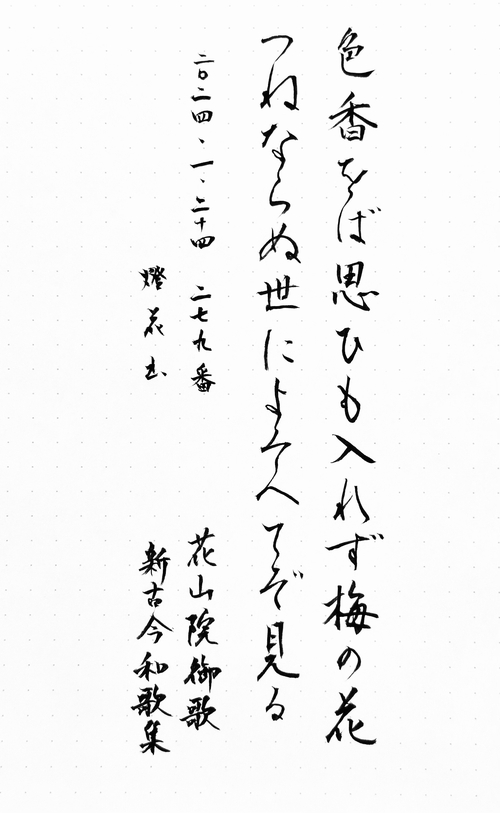 色香をば思ひも入れず梅の花
つねならぬ世によそへてぞ見る
二〇二四、一、二十四 二七九番
花山院御歌
燈花出
新古今和歌集